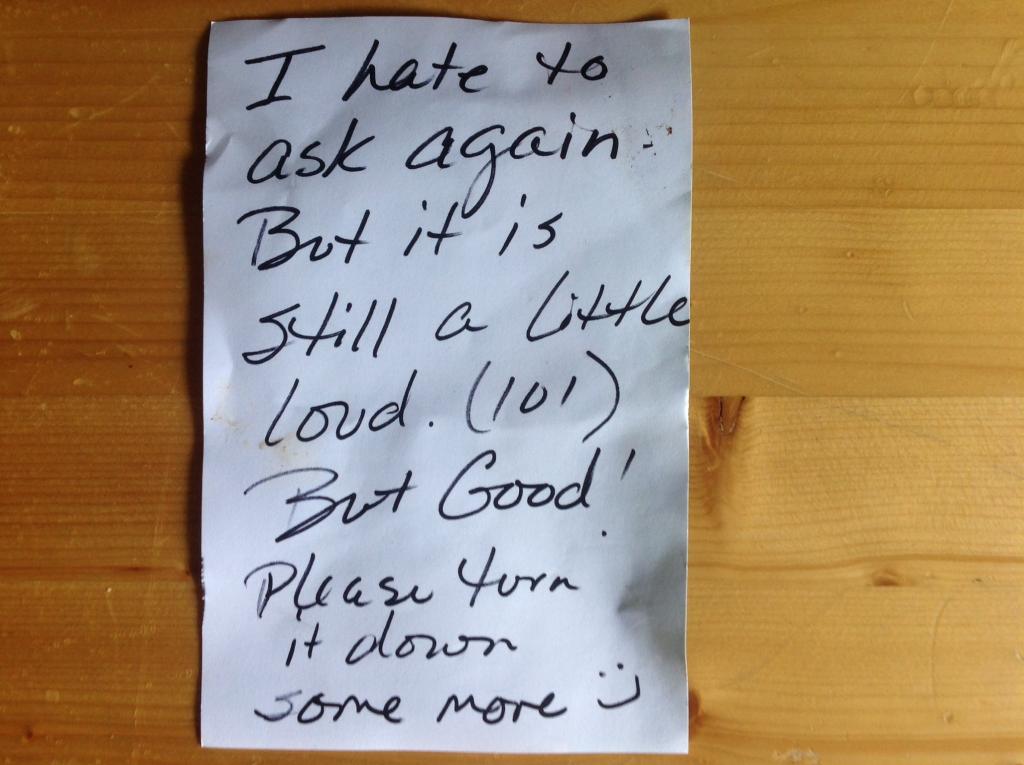 I hate to
ask again -
But it is
still a little
loud. (101)
But Good!
Please turn
it down
some more :)